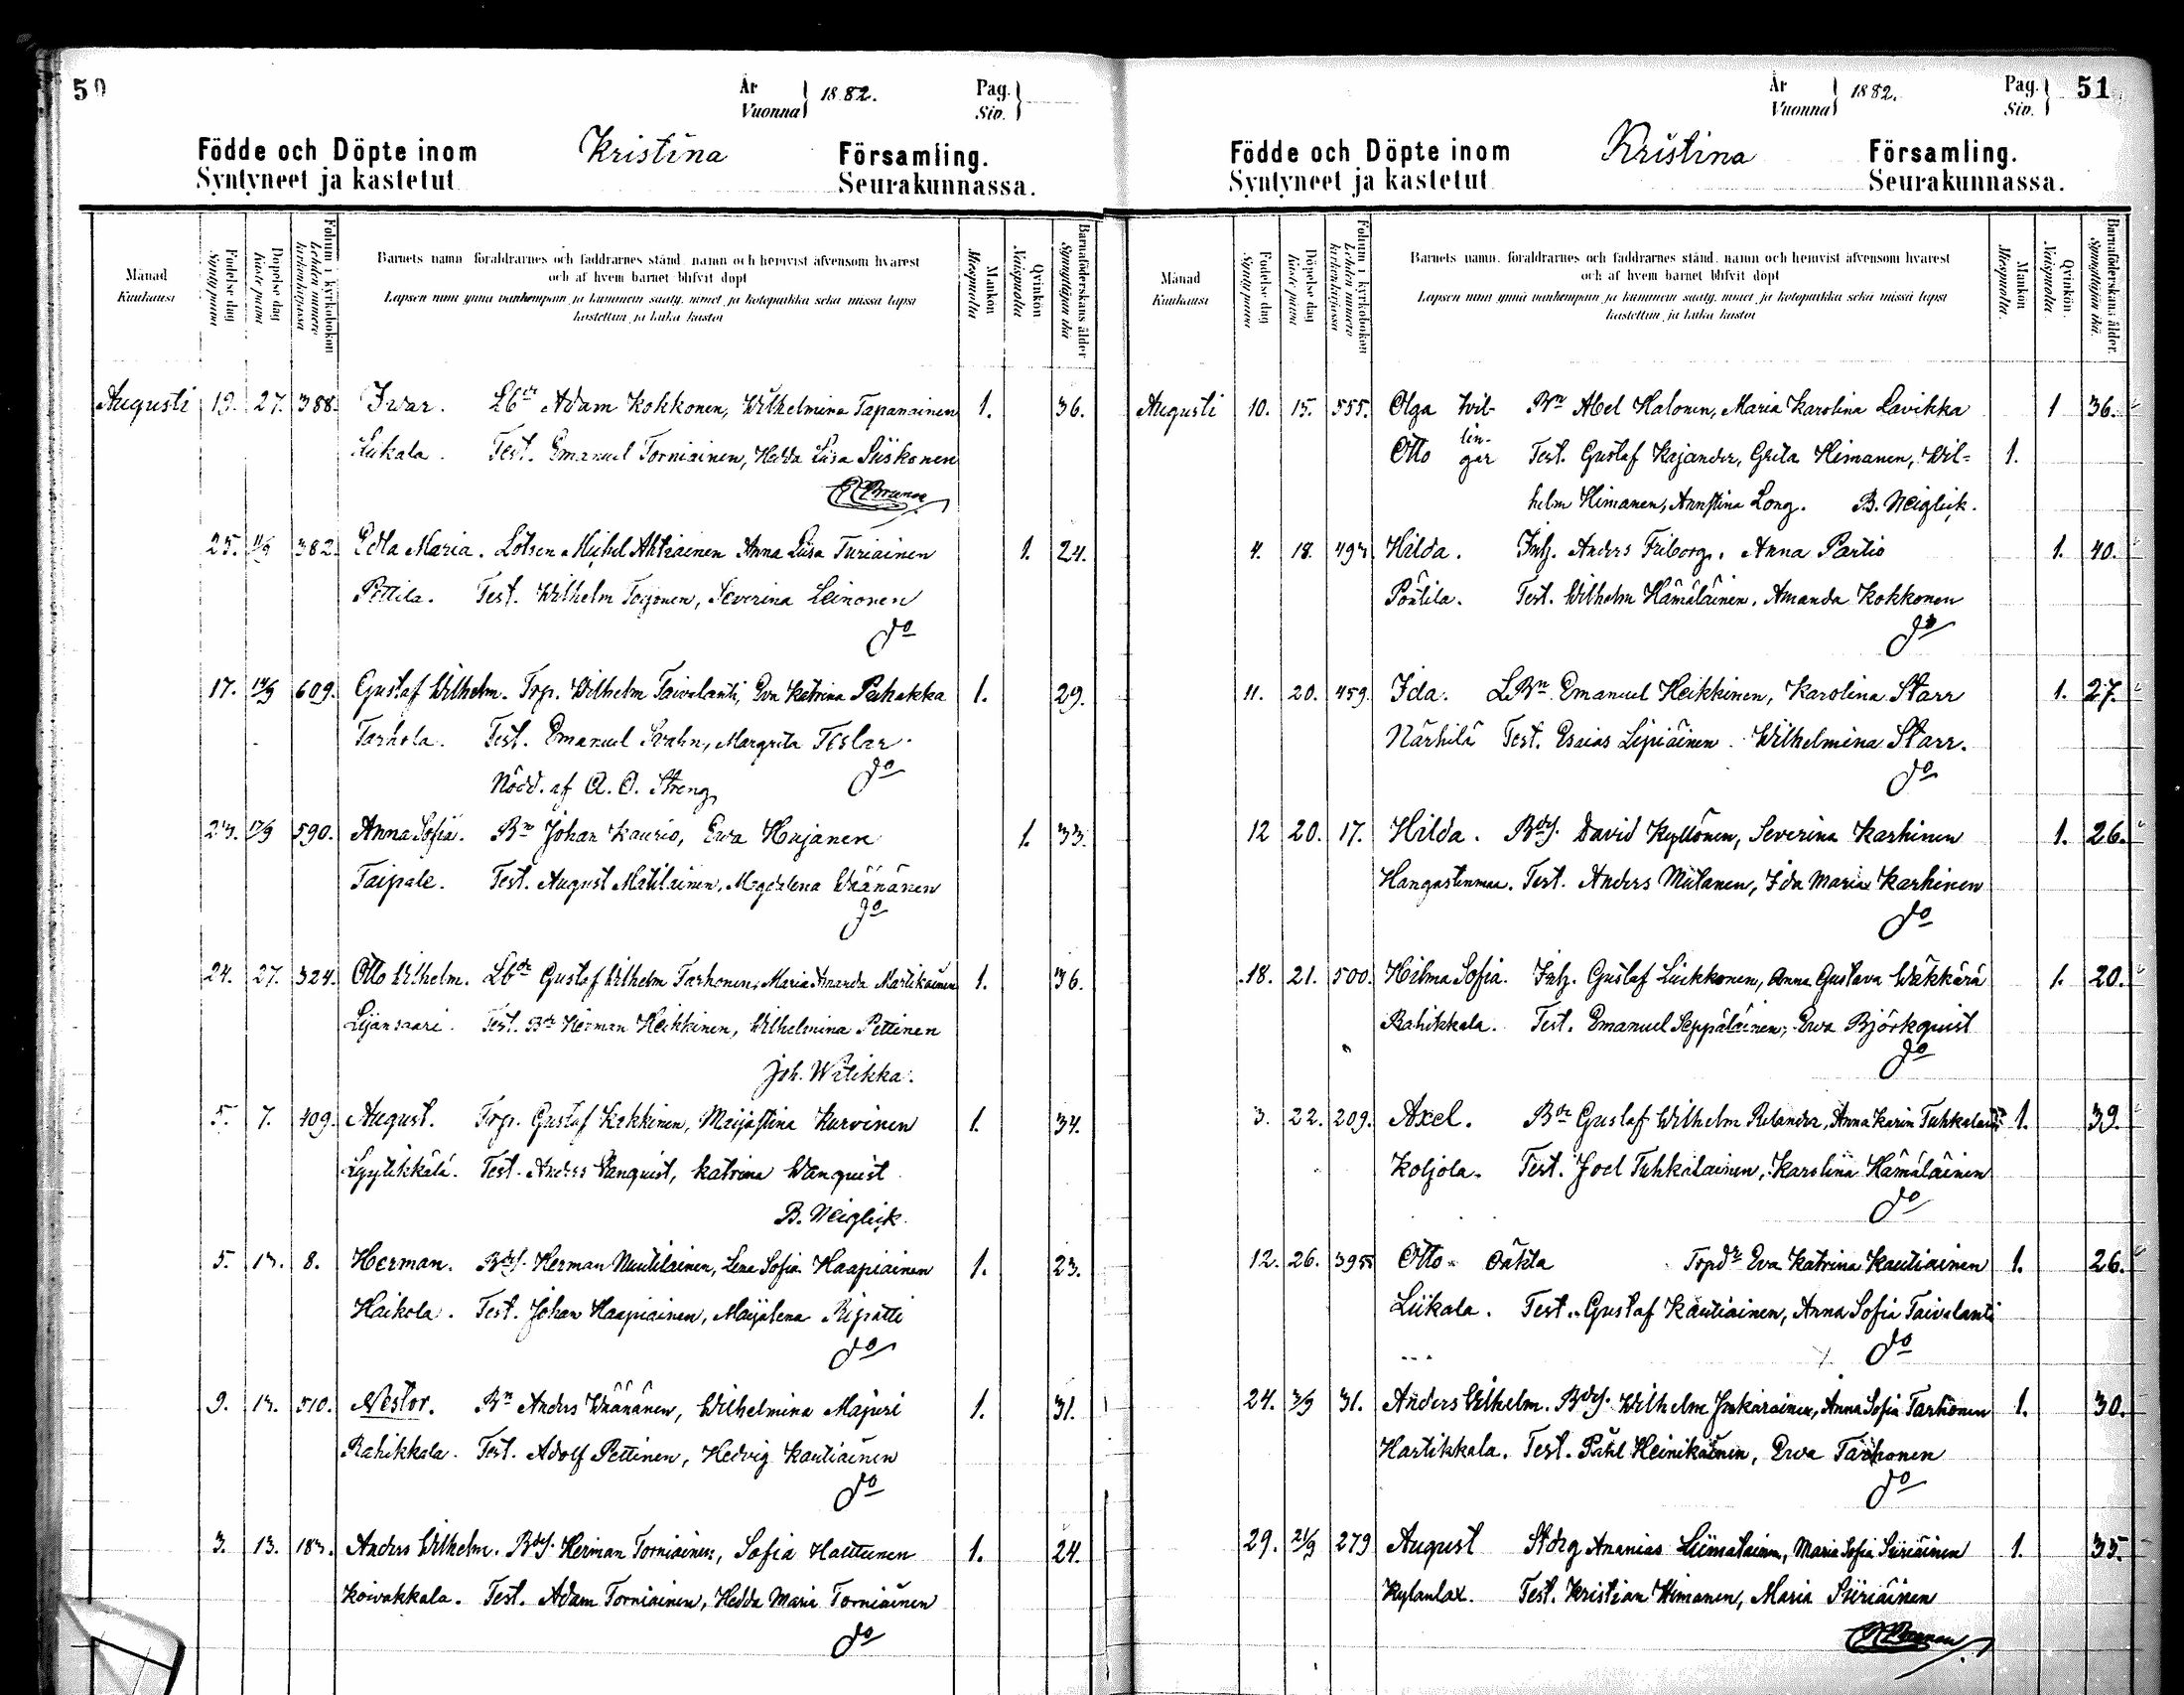 50
År
Vuonna } 1882.
Pag.
Siv. }
Födde och Döpte inom Kristina Församling.
Syntyneet ja kastetut Seurakunnassa.
Månad
Kuukausi
Födelse dag
Synty päivä
Döpelse dag
Kaste päivä
Folium i kyrkoboken
Lehden numero
kirkonkirjassa
Barnets namn föraldrarnes och faddrarnes stånd, namn och hemvist äfvensom hvarest
och af hvem barnet blifvit döpt
Lapsen nimi ynnä vanhempain ja kummein sääty, nimet ja kotopaikka sekä missä lapsi
kastettiin ja kuka kastoi
Mankön
Miespuolta
Qvinkön
Vaispuolta
Barnaföderskans ålder
Synnyttäjän ikä
Augusti 19. 27. 388. Ivar. Lbde Adam Kokkonen, Wilhelmina Tapanainen 1. 36.
Liikala. Test. Emanuel Torniainen, Hedda Liisa Piiskonen
25. 11/9 382. Edla Maria. Lotsen Michel Ahtiainen Anna Liisa Turiainen 1. 24.
Pettila. Test. Wilhelm Toijonen, Severina Leinonen
do
17. 14/9 609. Gustaf Wilhelm. Trp. Wilhelm Taivalanti, Eva Katrina Pahakka 1. 29.
Tarhola. Test. Emanuel Svahn, Margreta Teslar
Nödd. af A. O. Streng do
23. 17/9 590. Anna Sofia. Bn Johan Kaurio, Ewa Hujanen 1. 33.
Taipale. Test. August Matilainen, Magdalena Wäänänen
do
24. 27. 324. Otto Wilhelm. Lbde Gustaf Wilhelm Tarhonen, Maria Amanda Martikainen 1. 36.
Lijansaari. Test. Bde Herman Heikkinen, Wilhelmina Pettinen
Joh. Wätikka.
5. 7. 409. August. Trp. Gustaf Kakkinen, Maijastina Kurvinen 1. 34.
Lyytikkälä. Test. Anders Wanquist, Katrina Wanquist
B. Neiglick.
5. 13. 8. Herman. Bds. Herman Nuutilainen, Lena Sofia Haapiainen 1. 23.
Haikola. Test. Johan Haapiainen, Maijalena Ripatti
do
9. 13. 510. Nestor. Bn Anders Wäänänen, Wilhelmina Majuri 1. 31.
Rahikkala. Test. Adolf Pettinen, Hedvig Kautiainen
do
3. 13. 183. Anders Wilhelm. Bds. Herman Torniainen, Sofia Halttunen 1. 24.
Koivakkala. Test. Adam Torniainen, Hedda Maria Torniainen
do
År
Vuonna } 1882.
Pag.
Siv. } 51
Födde och Döpte inom Kristina Församling.
Syntyneet ja kastetut Seurakunnassa.
Månad
Kuukausi
Födelse dag
Synty päivä
Döpelse dag
Kaste päivä
Folium i kyrkoboken
Lehden numero
kirkonkirjassa
Barnets namn, föraldrarnes och faddrarnes stånd, namn och hemvist äfvensom hvarest
och af hvem barnet blifvit döpt
Lapsen nimi ynnä vanhempain ja kummein sääty, nimet ja kotopaikka sekä missä lapsi
kastettiin ja kuka kastoi
Mankön
Miespuolta.
Qvinkön.
Vaispuolta
Barnaföderskans ålder.
Synnyttäjän ikä.
Augusti 10. 15. 555. Olga tvil- Bn Abel Halonen, Maria Karolina Lavikka 1 36.
lin-
Otto gar Test. Gustaf Kajander, Greta Himanen, Wil= 1.
helm Himanen, Annstina Long. B. Neiglick.
4. 18. 493. Hilda. Inh. Anders Friborg, Anna Partio 1. 40.
Pöntila. Test. Wilhelm Hämäläinen, Amanda Kokkonen
do
11. 20. 459. Ida. LBn Emanuel Heikkinen, Karolina Starr 1. 27.
Närhilä Test. Esaias Lipiäinen Wilhelmina Starr.
do
12 20. 17. Hilda. Bds. David Kyllönen, Severina Karhinen 1. 26.
Hangastenmaa. Test. Anders Mälanen, Ida Maria Karhinen
do
18. 21. 500. Hilma Sofia. Inh. Gustaf Liukkonen, Anna Gustava Wäkkärä 1. 20.
Rahikkala. Test. Emanuel Seppäläinen, Ewa Björkquist
do
3. 22. 209. Axel. Bde Gustaf Wilhelm Relander, Anna Karin Tuhkalainen 1. 39.
Koljola. Test. Joel Tuhkalainen, Karolina Hämäläinen
do
12. 26. 395 Otto oäkta Trpdr Eva Katrina Kautiainen 1. 26.
Liikala. Test. Gustaf Kautiainen, Anna Sofia Taivalanti
do
24. 3/9 31. Anders Wilhelm. Bds. Wilhelm Inkarainen, Anna Sofia Tarhonen 1. 30.
Hartikkala. Test. Påhl Heinikainen, Ewa Tarhonen
do
29. 21/9 279 August Stdrg Ananias Liimatainen, Maria Sofia Siiriäinen 1. 35.
Kylanlax. Test. Kristian Himanen, Maria Piiriäinen